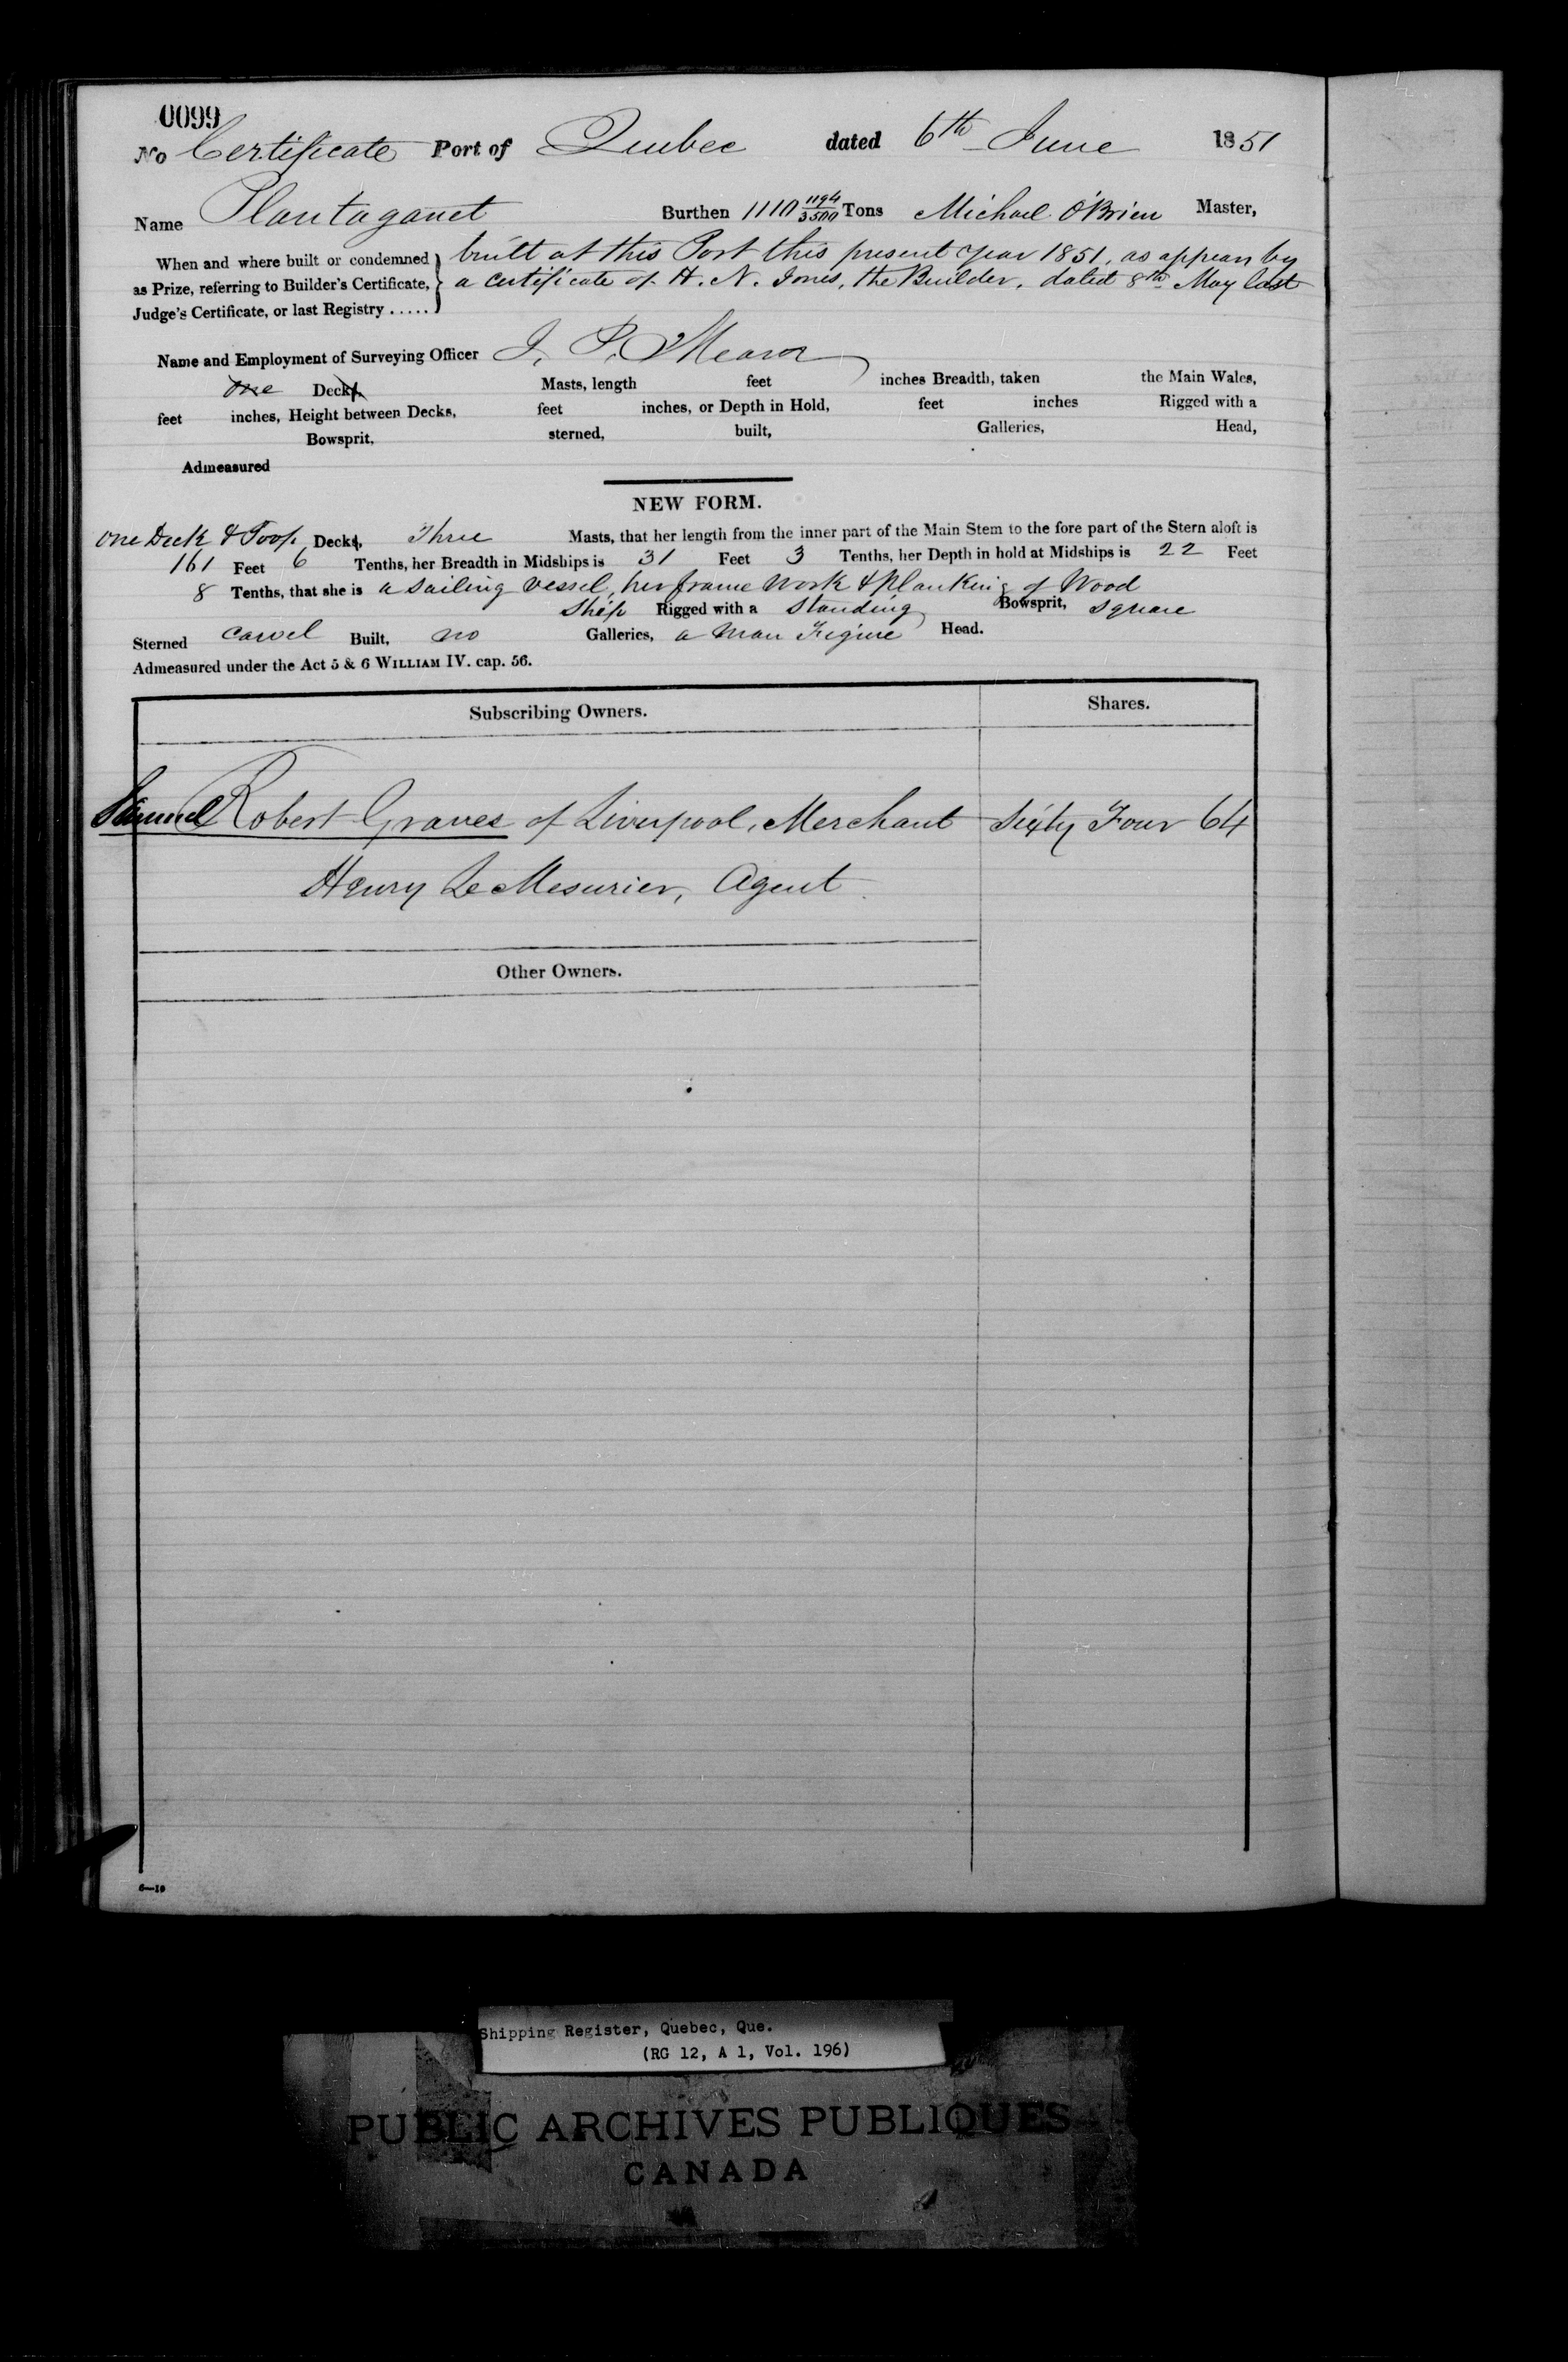 0099
No Certificate Port of Quebec dated 6th June 1851
Name Plantaganet Burthen 1110 1194/3500 Tons Michael O'Brien Master,
When and where built or condemned as Prize, referring to Builder's Certificate, Judge's Certificate, or last Registry .....
built at this Port this present year 1851, as appears by
a certificate of H. N. Jones, the Builder, dated 8th May last
Name and Employment of Surveying Officer J. P.
one Decks. Masts, length feet inches Breadth, taken the Main Wales,
feet inches, Height between Decks, feet inches, or Depth in Hold, feet inches Rigged with a
Bowsprit, sterned, built, Galleries, Head,
Admeasured
NEW FORM.
one Deck & Poop Decks, Three Masts, that her length from the inner part of the Main Stem to the fore part of the Stern aloft is
161 Feet 6 Tenths, her Breadth in Midships is 31 Feet 3 Tenths, her Depth in hold at Midships is 22 Feet
8 Tenths, that she is a sailing vessel, her frame work & planking of Wood
Ship Rigged with a Standing Bowsprit, square
Sterned carvel Built, no Galleries, a Man Figure Head.
Admeasured under the Act 5 & 6 WILLIAM IV. cap. 56.
Subscribing Owners. Shares.
Samuel Robert Graves of Liverpool, Merchant Sixty Four 64
Henry LeMesurier, Agent
Other Owners.
6—10
Shipping Register, Quebec, Que.
(RG 12, A 1, Vol. 196)
PUBLIC ARCHIVES PUBLIQUES
CANADA